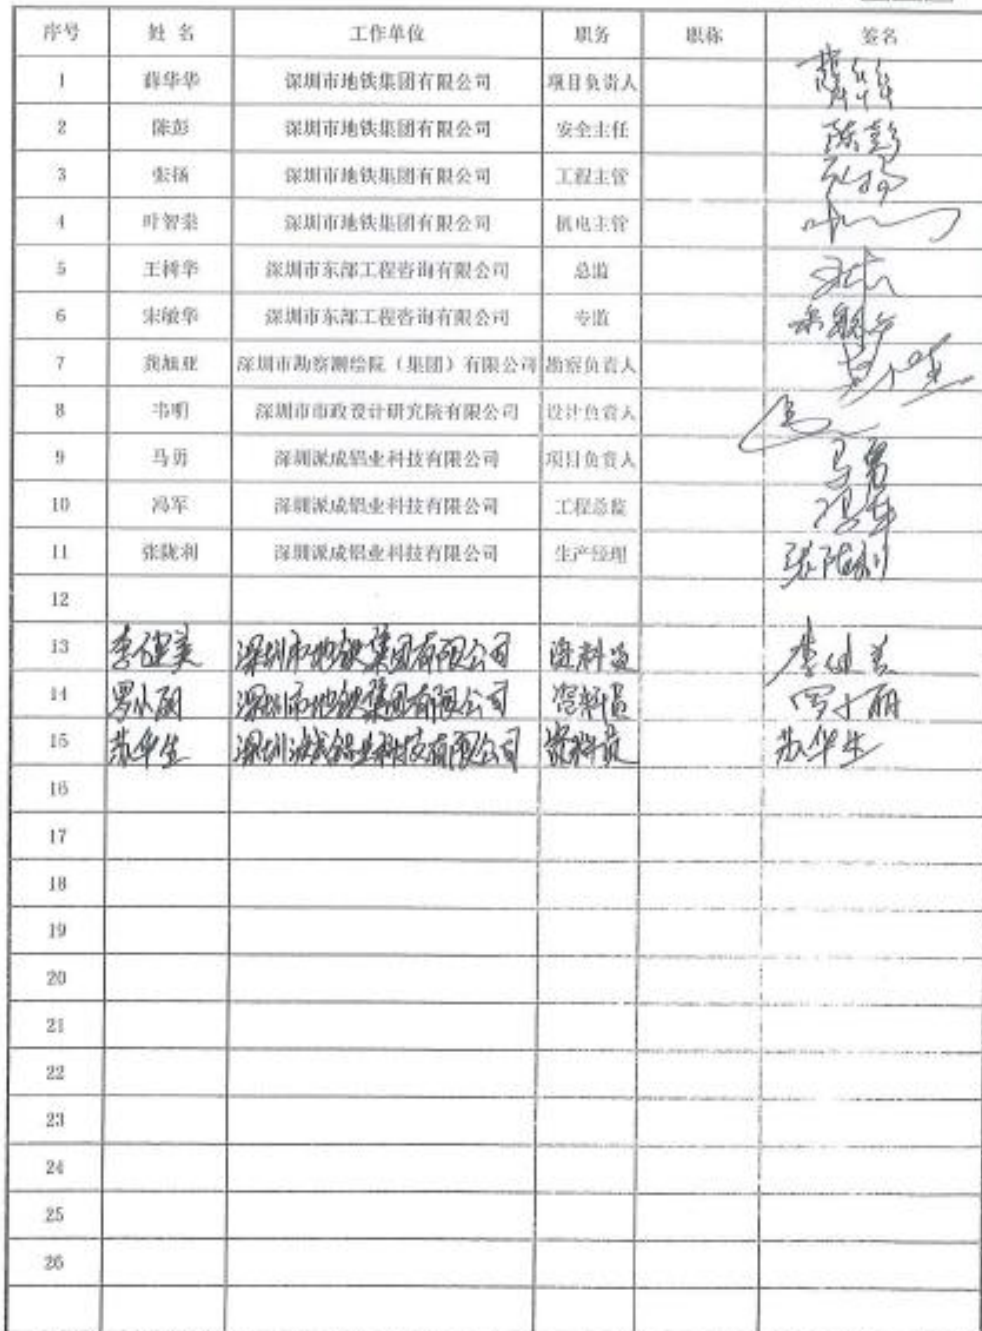 序号 姓名 工作单位 职务 职称 签名
1 薛华华 深圳市地铁集团有限公司 项目负责人
2 陈彭 深圳市地铁集团有限公司 安全主任 陈彭
3 张扬 深圳市地铁集团有限公司 工程主管
4 叶智 深圳市地铁集团有限公司 机电主管
5 王树华 深圳市东部工程咨询有限公司 总监
6 宋敏华 深圳市东部工程咨询有限公司 专监
7 龚旭亚 深圳市勘察测绘院（集团）有限公司 勘察负责人
8 韦明 深圳市市政设计研究院有限公司 设计负责人
9 马勇 深圳派成铝业科技有限公司 项目负责人 马勇
10 冯军 深圳派成铝业科技有限公司 工程总监 冯军
11 张陇利 深圳派成铝业科技有限公司 生产经理 张陇利
12
13 李健美 深圳市地铁集团有限公司 资料员 李健美
14 罗小丽 深圳市地铁集团有限公司 资料员 罗小丽
15 苏华生 深圳派成铝业科技有限公司 资料员 苏华生
16
17
18
19
20
21
22
23
24
25
26